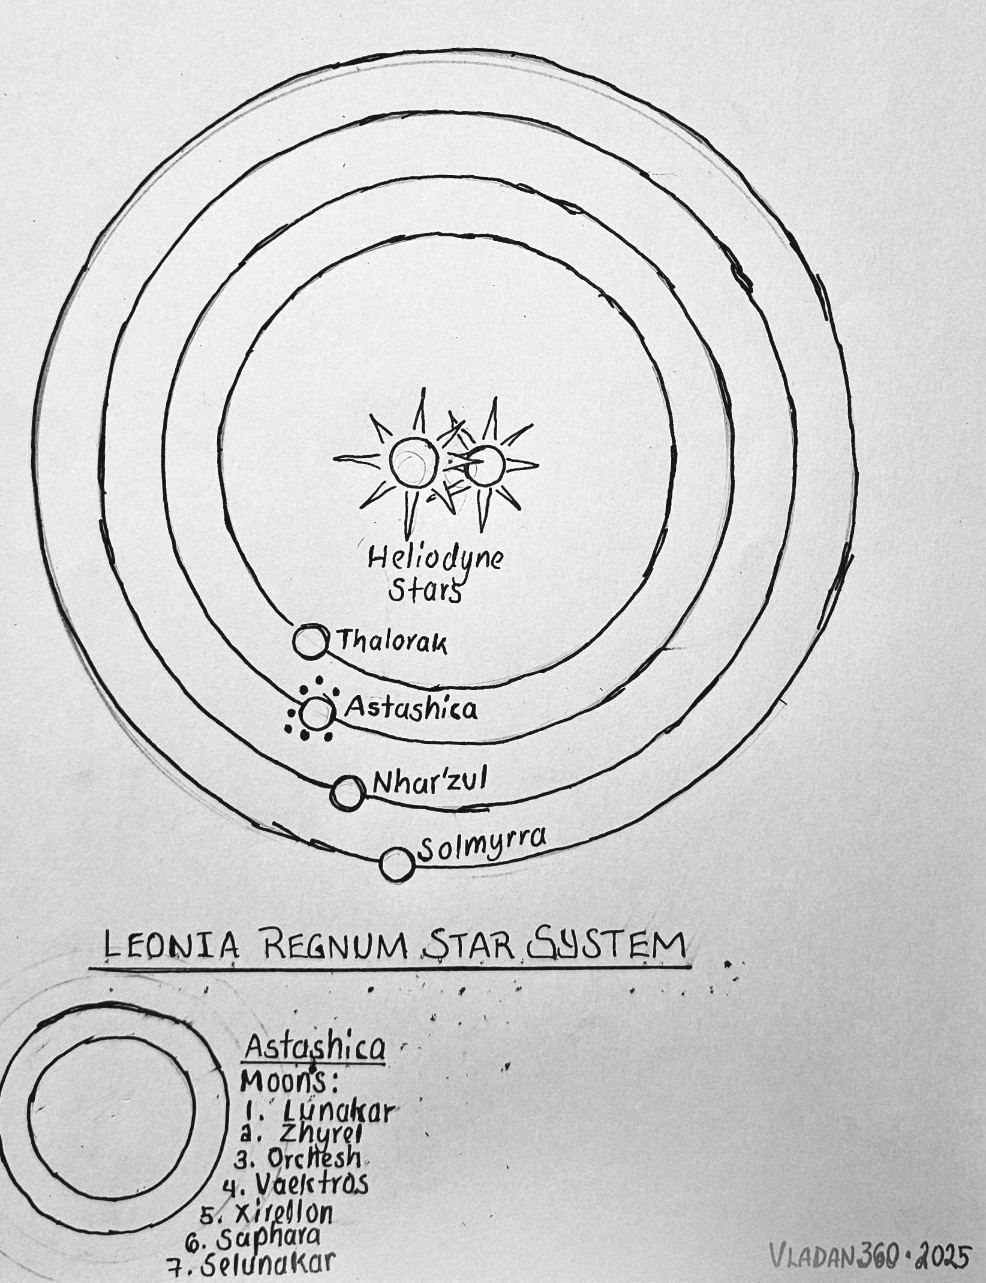 Heliodyne
Stars
Thalorak
Astashica
Nhar'zul
Solmyrra
LEONIA REGNUM STAR SYSTEM
Astashica
Moons:
1. Lunakar
2. Zhyrel
3. Orchesh
4. Vaektros
5. Xirellon
6. Saphara
7. Selunakar
VLADAN360·2025